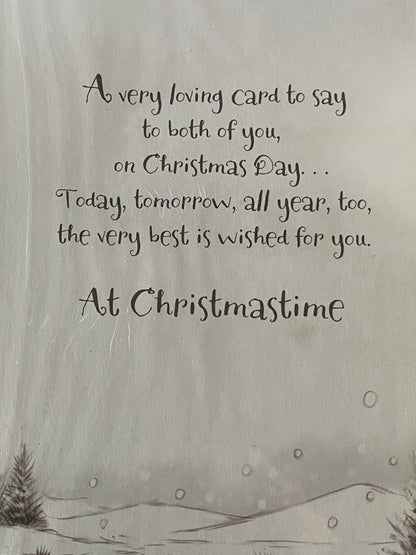 A very loving card to say
to both of you,
on Christmas Day. . .
Today, tomorrow, all year, too,
the very best is wished for you.
At Christmastime